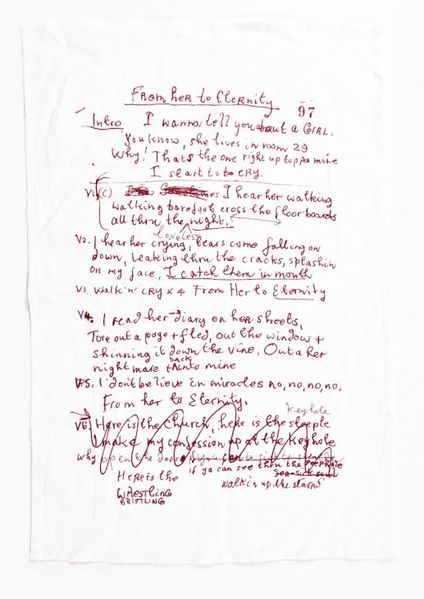 From Her to Eternity 97
Intro I wanna tell you about a GIRL.
You know, she lives in room 29
Why! Thats the one right up toppa mine
I start to to CRY.
V1.(c) I hear her walking
walking barefoot cross the floor boards
all thru the night.
loveless
V2. I hear her crying, tears come falling on
down, leaking thru the cracks, splashin
on my face, I catch them in mouth
V3. Walk 'n' CRY x 4 From Her to Eternity
V4. I read her diary on her sheets,
Tore out a page + fled, out the window +
shinning it down the vine. Outa her
back
night mare into mine
V5. I dont believe in miracles no, no, no, no,
From her to Eternity.
Keyhole
V6. Here is the Church, here is the steeple
I make my confession up at the Keyhole
Why open the door
if ya can see thru the
Here is the
walkin up the stairs
WRESTLING
BRISTLING